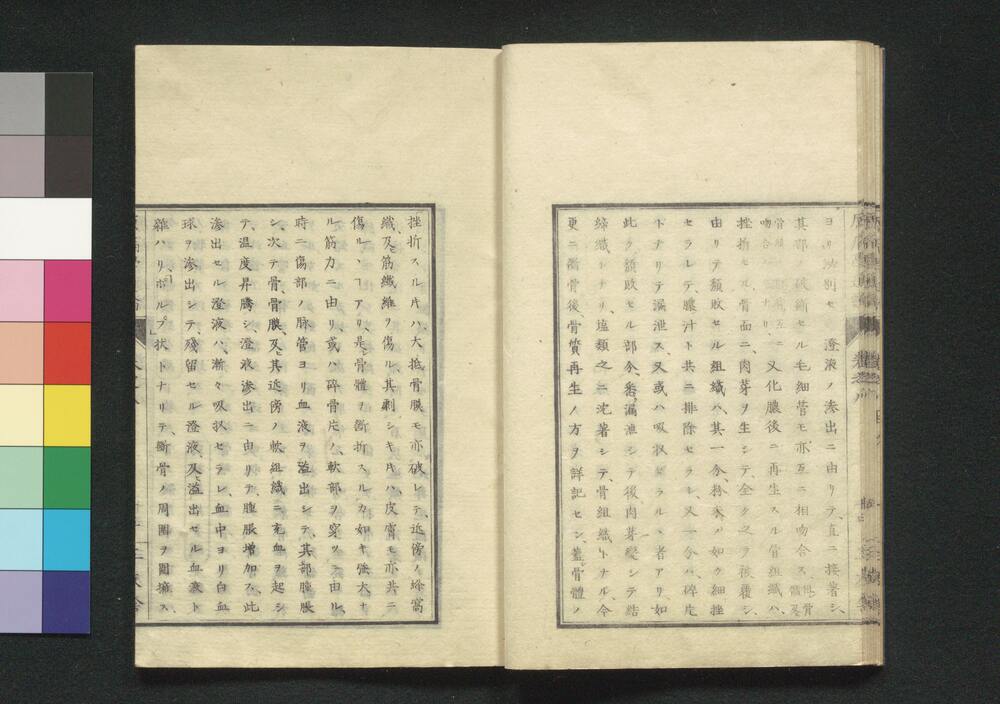 ヨリ分別セ 澄液ノ滲出ニ由リテ直ニ接著シ、
其部ノ破断セル毛細管モ亦互ニ相吻合ス
吻合 ナリ、又化膿後ニ再生スル骨組織ハ、
挫折セル骨面ニ、肉芽ヲ生シテ、全ク之ヲ被覆シ、
由リテ頽敗セル組織ハ、其一分、粉末ノ如ク細挫
セラレテ、膿汁ト共ニ排除セラレ、又一分ハ、碎片
トナリテ漏泄ス、又或ハ吸収セラルヽ者アリ、如
此ク頽敗セル部分、悉漏泄シテ後、肉芽變シテ結
締織トナリ、塩類之ニ沈著シテ、骨組織トナル、今
更ニ斷骨後、骨質再生ノ方ヲ詳記セン、蓋骨體ノ
挫折スル片ハ、大抵骨膜モ亦破レテ、近傍ノ蜂窩
織及筋纖維ヲ傷ル、其劇シキ片ハ、皮膚モ亦共ニ
傷ルヽヿアリ、是骨體ヲ斷折スルカ如キ強大ナ
ル筋力ニ由リ、或ハ碎骨片ノ軟部ヲ穿ツニ由ル、
時ニ傷部ノ脉管ヨリ血液ヲ溢出シテ、其部腫脹
シ、次テ骨、骨膜及其近傍ノ軟組織ニ充血ヲ起シ
テ、温度昇騰シ、澄液滲出ニ由リテ、腫脹増加ス、此
滲出セル澄液ハ、漸々吸収セラレ、血中ヨリ白血
球ヲ滲出シテ、残留セル澄液、及溢出セル血液ト
雜ハリ、「ポルプ」状トナリテ、斷骨ノ周圍ヲ圍擁ス、